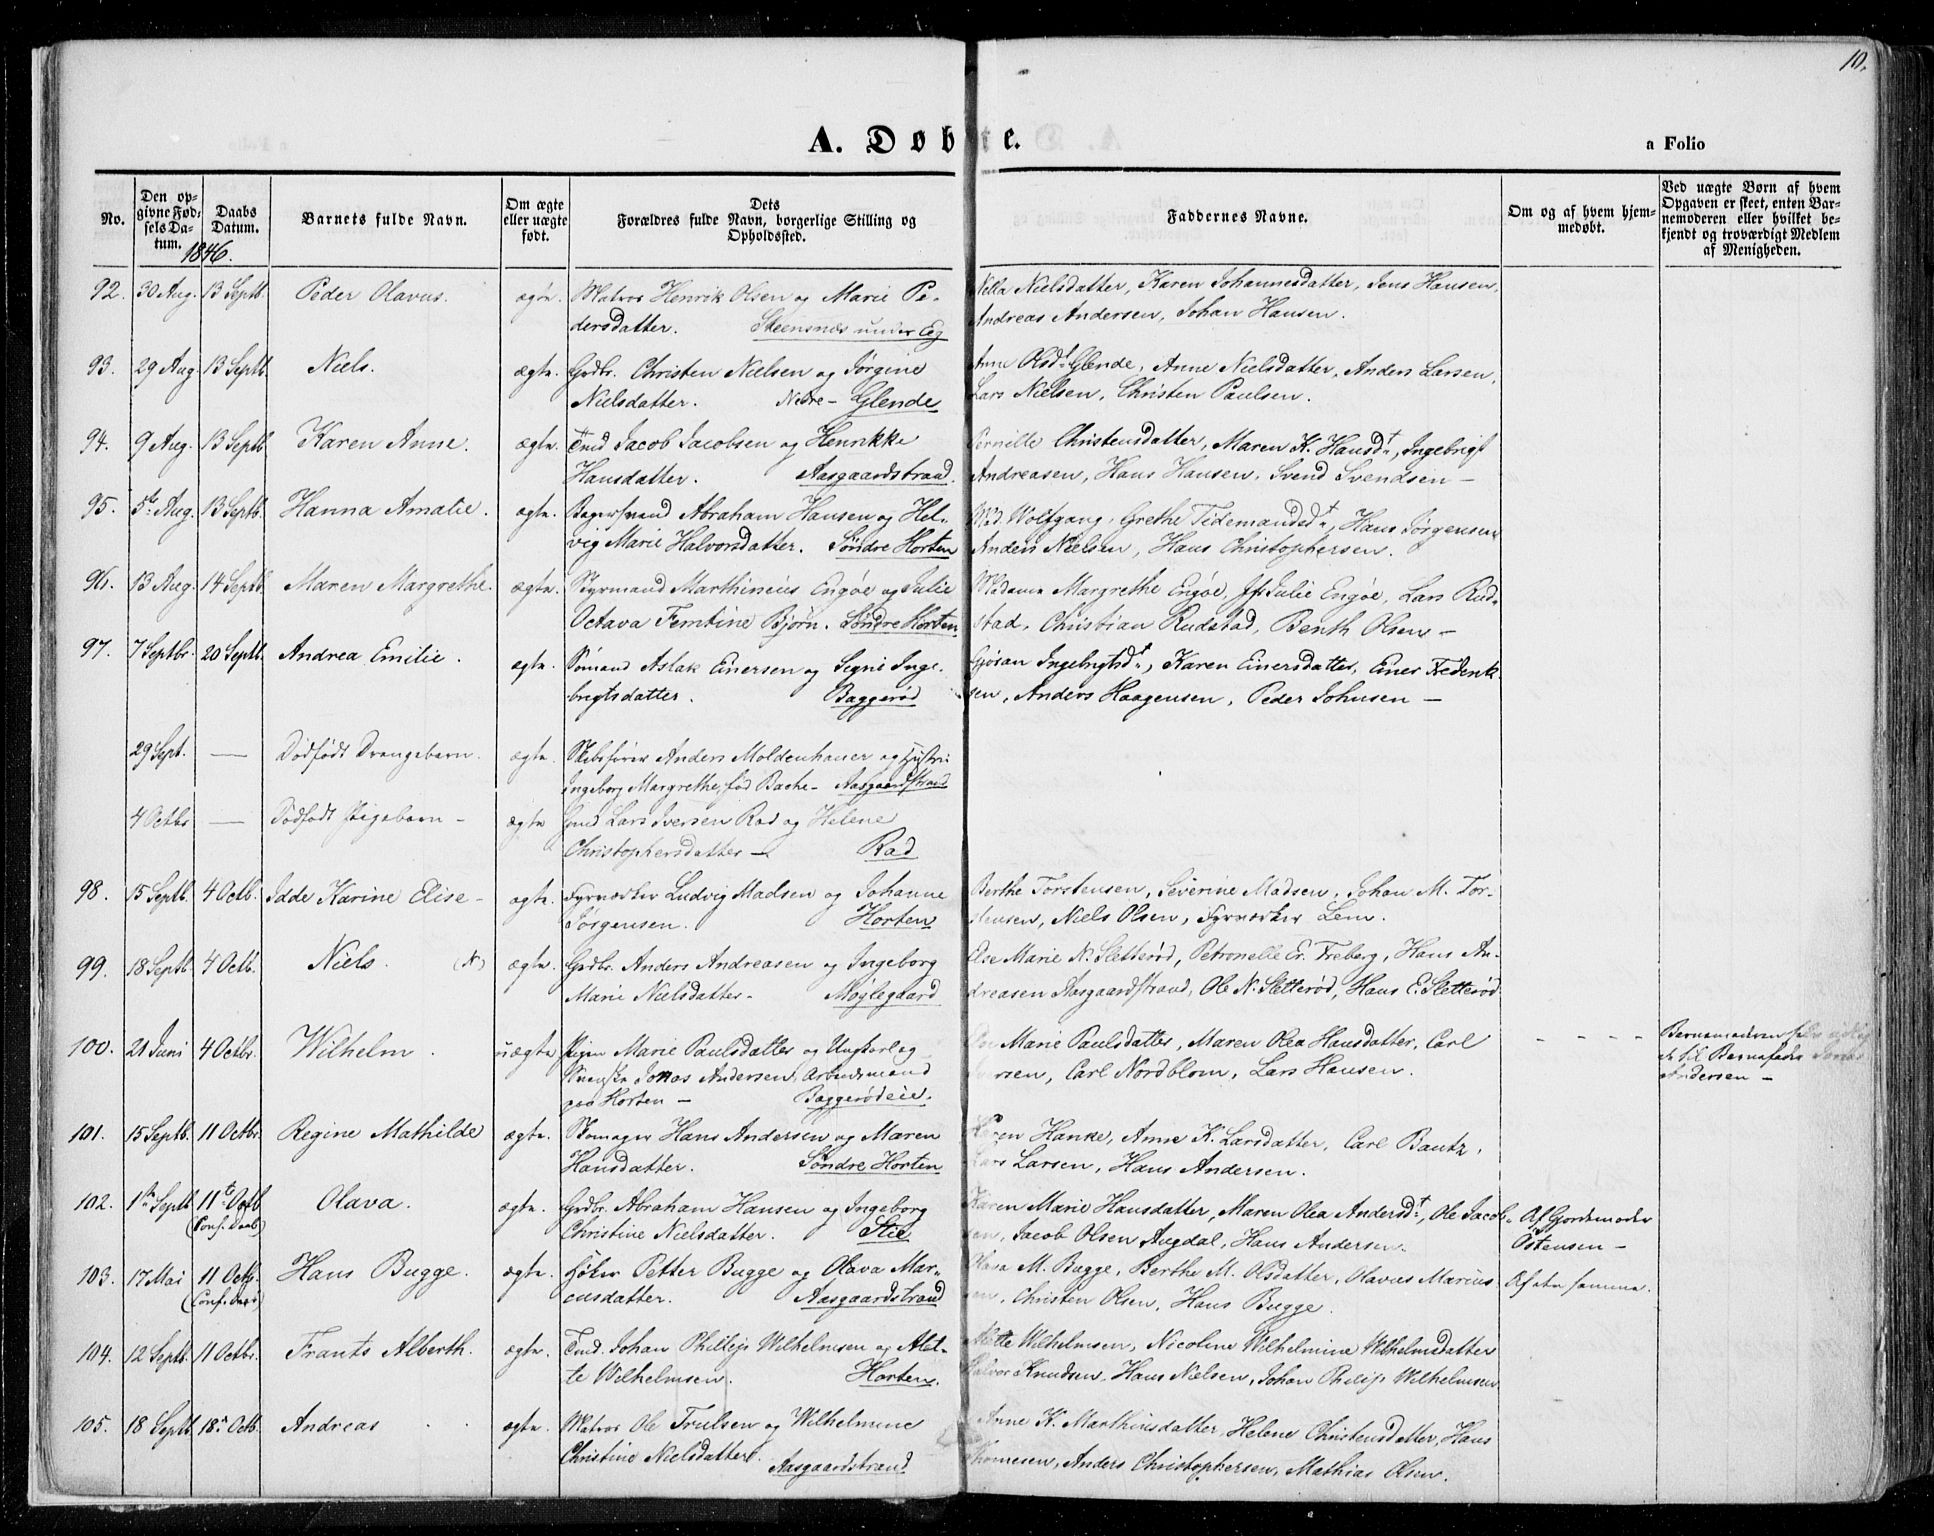 10.
A. Døbte.
a Folio
No.
Den opgivne Fødsels Datum.
Daabs Datum.
Barnets fulde Navn.
Om ægte eller uægte født.
Dets Forældres fulde Navn, borgerlige Stilling og Opholdssted.
Faddernes Navne.
Om og af hvem hjemmedøbt.
Ved uægte Børn af hvem Opgaven er skeet, enten Barnemoderen eller hvilket bekjendt og troværdigt Medlem af Menigheden.
1846.
92. 30 Aug. 13 Septb. Peder Olavus. ægte. Matros Henrik Olsen og Marie Pe-
dersdatter. Steensnæs under Eg
Nielsdatter, Karen Johannesdatter, Jens Hansen,
Andreas Andersen, Johan Hansen.
93. 29 Aug 13 Septb. Niels. ægte. Grdbr. Christen Nielsen og Jørgine
Nielsdatter. Nedre- Glende
Anne Olsdt. Glende, Anne Nielsdatter, Anders Larsen,
Lars Nielsen, Christen Paulsen.
94. 9 Aug. 13 Septb Karen Anne. ægte. Tmd Jacob Jacobsen og Henrikke
Hansdatter. Aasgaardstrand.
Pernille Christensdatter, Maren K. Hansdt., Ingebrigt
Andreasen, Hans Hansen, Svend Svendsen -
95. 5te Aug. 13 Septb. Hanna Amalie. ægte. Bagersvend Abraham Hansen og Hel-
vig Marie Halvorsdatter. Søndre Horten
Mad. Wolfgang, Grethe Tidemandsdt., Hans Jørgensen
Anders Nielsen, Hans Christophersen.
96. 13 Aug. 14 Septb. Maren Margrethe. ægte. Styrmand Marthinius Engøe og Julie
Octava Femtine Bjørn. Søndre Horten.
Madame Margrethe Engøe, Jfr Julie Engøe, Lars Rud-
stad, Christian Rudstad, Benth Olsen -
97. 7 Septbr. 20 Septb. Andrea Emilie. ægte. Sømand Aslak Einersen og Segni Inge-
brigtsdatter. Baggerød
Gjøran Ingebrigtsdt., Karen Einersdatter, Einer Frederik-
sen, Anders Haagensen, Peder Johnsen -
29 Sept. — Dødfødt Drengebarn. ægte. Skibsfører Anders Moldenhauer og Hustru
Ingeborg Margrethe, fød Bache - Aasgaardstrand
4 Octbr — Dødfødt Pigebarn - ægte Gmd Lars Iversen Rad og Helene
Christophersdatter - Rad
98. 15 Septb. 4 Octb. Idde Karine Elise - ægte. Fyrværker Ludvig Madsen og Johanne
Jørgensen. Horten
Berthe Torstensen, Severine Madsen, Johan M. Tor-
stensen, Niels Olsen, Fyrværker Lem.
99. 18 Septb 4 Octb. Niels. (N) ægte. Grdbr. Anders Andreasen og Ingeborg
Marie Nielsdatter - Møylegaard
Else Marie N. Sletterød, Petronelle Cr. Freberg, Hans An-
dreasen Aasgaardstrand, Ole N. Sletterød, Hans E. Sletterød
100. 21 Juni 4 Octbr. Wilhelm. uægte Pigen Marie Paulsdatter og Ungkarl og
Svenske Jonas Andersen, Arbeidsmand
paa Horten - Baggerødeie.
Marie Paulsdatter, Maren Olea Hansdatter, Carl
Carl Nordblom, Lars Hansen.
- - - -
Barnemoderen
til Barnefader Jonas
Andersen -
101. 15 Septb. 11 Octbr. Regine Mathilde ægte. Skomager Hans Andersen og Maren
Hansdatter. Søndre Horten
Karen Hanke, Anne K. Larsdatter, Carl Bautz,
Lars Larsen, Hans Andersen.
102. 1ste Septb 11te Octb (Conf. Daab) Olava. ægte. Grdbr. Abraham Hansen og Ingeborg
Christine Nielsdatter. Stie
Karen Marie Hansdatter, Maren Olea Andersdt., Ole Jacob-
sen, Jacob Olsen Augdal, Hans Andersen.
Af Gjordemoder
Ostensen -
103. 17 Mai 11 Octb. (Conf. Daab) Hans Bugge. ægte. Høker Petter Bugge og Olava Mar-
cusdatter. Aasgaardstrand
Olava M. Bugge, Berthe M. Olsdatter, Olavus Marius-
sen, Christen Olsen, Hans Bugge.
Af den samme.
104. 12 Septb. 11 Octbr. Frants Alberth. ægte. Tmd. Johan Phillip Wilhelmsen og Met-
te Wilhelmsen. Horten.
Mette Wilhelmsen, Nicoline Wilhelmine Wilhelmsdatter
Halvor Knudsen, Hans Nielsen, Johan Philip Wilhelmsen
105. 18 Septb 18de Octb. Andreas ægte. Matros Ole Trulsen og Wilhelmine
Christine Nielsdatter. Aasgaardstrand
Anne K. Marthinsdatter, Helene Christensdatter, Hans
Thomesen, Anders Christophersen, Mathias Olsen.